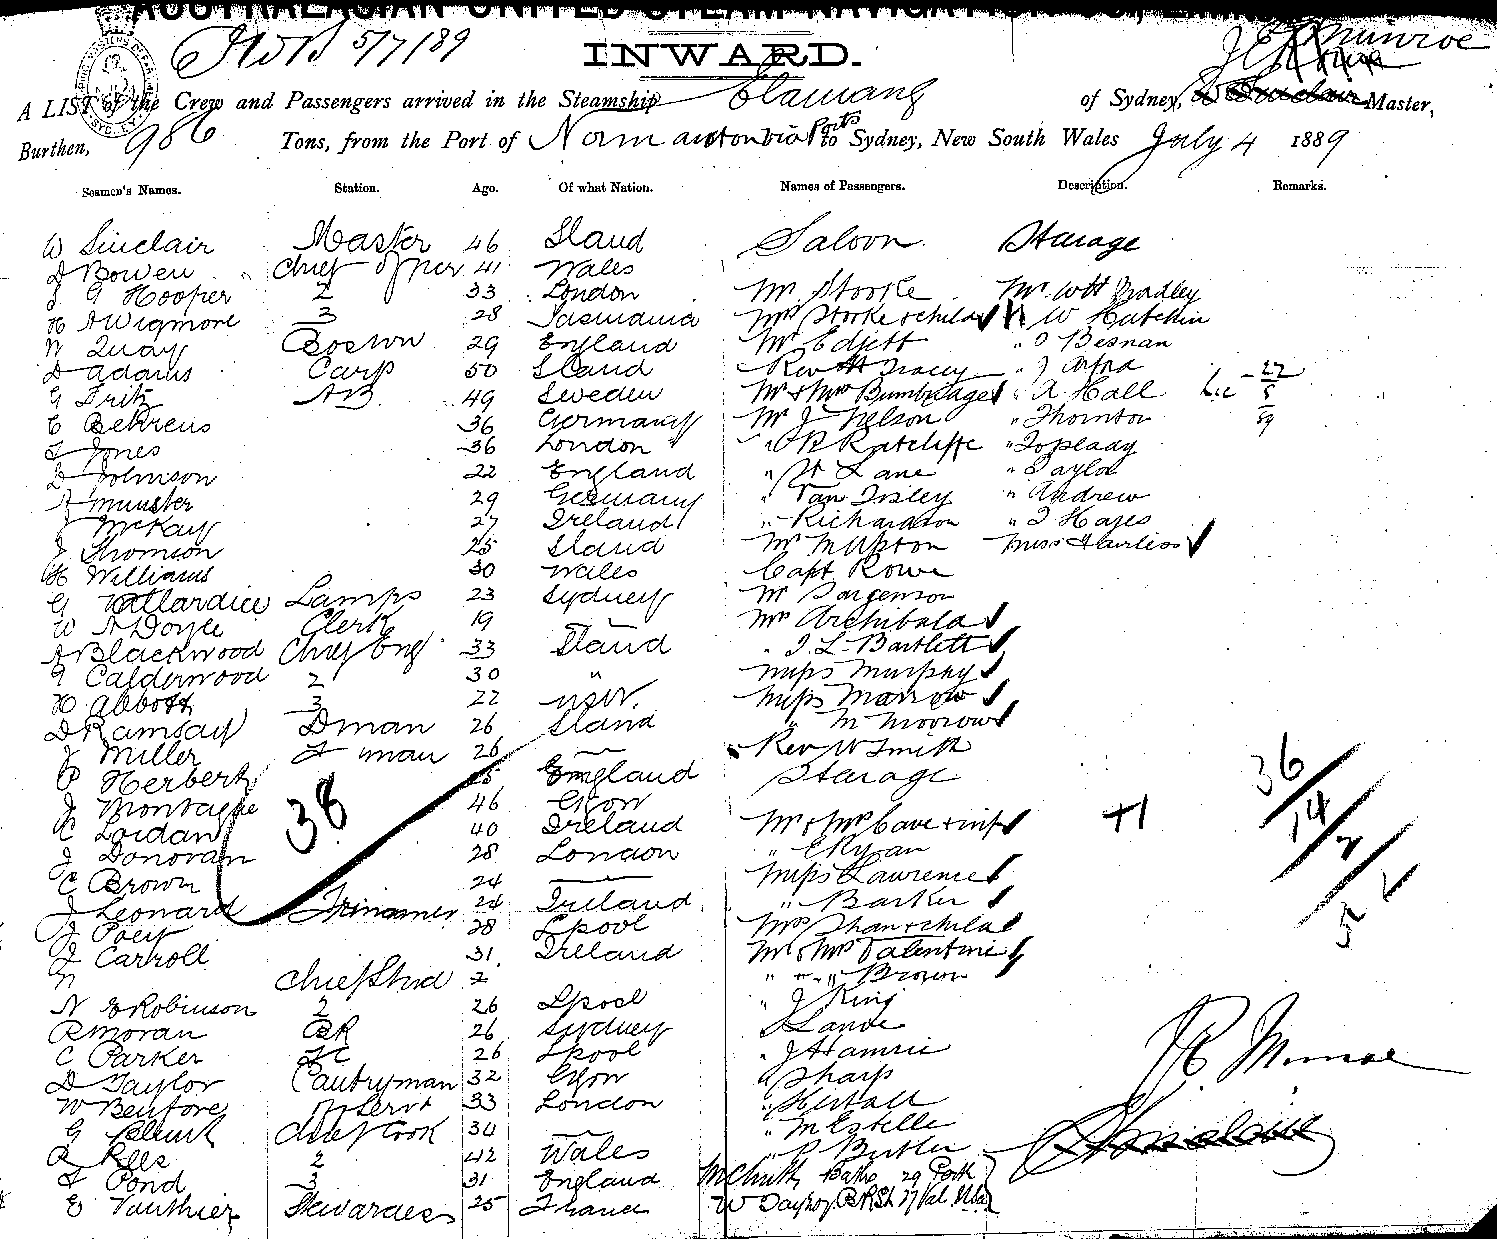 AUSTRALASIAN UNITED STEAM NAVIGATION CO., LIMITED
5/7/89
INWARD.
J E Munroe
A LIST of the Crew and Passengers arrived in the Steamship Elamang of Sydney, W Sinclair Master,
Burthen, 986 Tons, from the Port of Normanton via Ports to Sydney, New South Wales July 4 1889
Seamen's Names. Station. Age. Of what Nation. Names of Passengers. Description. Remarks.
W Sinclair Master 46 Sland Saloon Starage
D Bowen Chief Officer 41 Wales
J G Hooper 2 33 London Mr Stooke Mr WH Bradley
H A Wigmore 3 28 Tasmania Mrs Stooke & child W Hutchin
N Quay Bosewn 29 England Mr Edjett " Besnan
D Adams Carp 50 Sland Rev Tracey " J
G Fritz AB 49 Sweden Mr & Mrs Bumbrage " A Hall Lic - 22/5/89
C Behrens 36 Germany Mr J Nelson " Thornton
J Jones 36 London " Ratcliffe " Topleady
D Johnson 22 England " H Lane " Taylor
A Munster 29 Germany " Van Tisley " Andrew
J McKay 27 Ireland " Richardson " J Hayes
J Thomson 25 Sland Mr M Upton Miss Fairliss
H Williams 30 Wales Capt Rowe
G Vallardice Lamps 23 Sydney Mr Jorgenson
W A Doyle Clerk 19 — Mrs Archibald
A Blackwood Chief Eng 33 Sland " J L Bartlett
G Calderwood 2 30 " Miss Murphy
H Abbott 3 22 NSW. Miss Marrow
D Ramsay Dman 26 Sland " M Morrow
J Miller F man 26 — Rev W Smith
P Herbert 25 England Starage
J Montague 46 Gkow
C Lordan 40 Ireland Mr & Mrs Cave & inf +1
J Donovan 28 London " Ryan
C Brown 24 — Miss Lawrence
J Leonard Trimmer 24 Ireland " Barker
J Poey 28 Lpool Mrs Shan & child
J Carroll 31 Ireland Mr & Mrs Valentine
N Chief Stwd 2 " " " Brown
N E Robinson 2 26 Lpool " J King
R Moran BR 26 Sydney
C Parker FC 26 Lpool " J Hamrie
D Taylor Pantryman 32 Gkow " Sharp
W Benfore Mr Servt 33 London
G Chief Cook 34 — " M Estelle
R Rees 2 42 Wales " P Butler
F Pond 3 31 England
E Vauthier Stewardess 25 France
38
36/14/2/5
J E Munroe